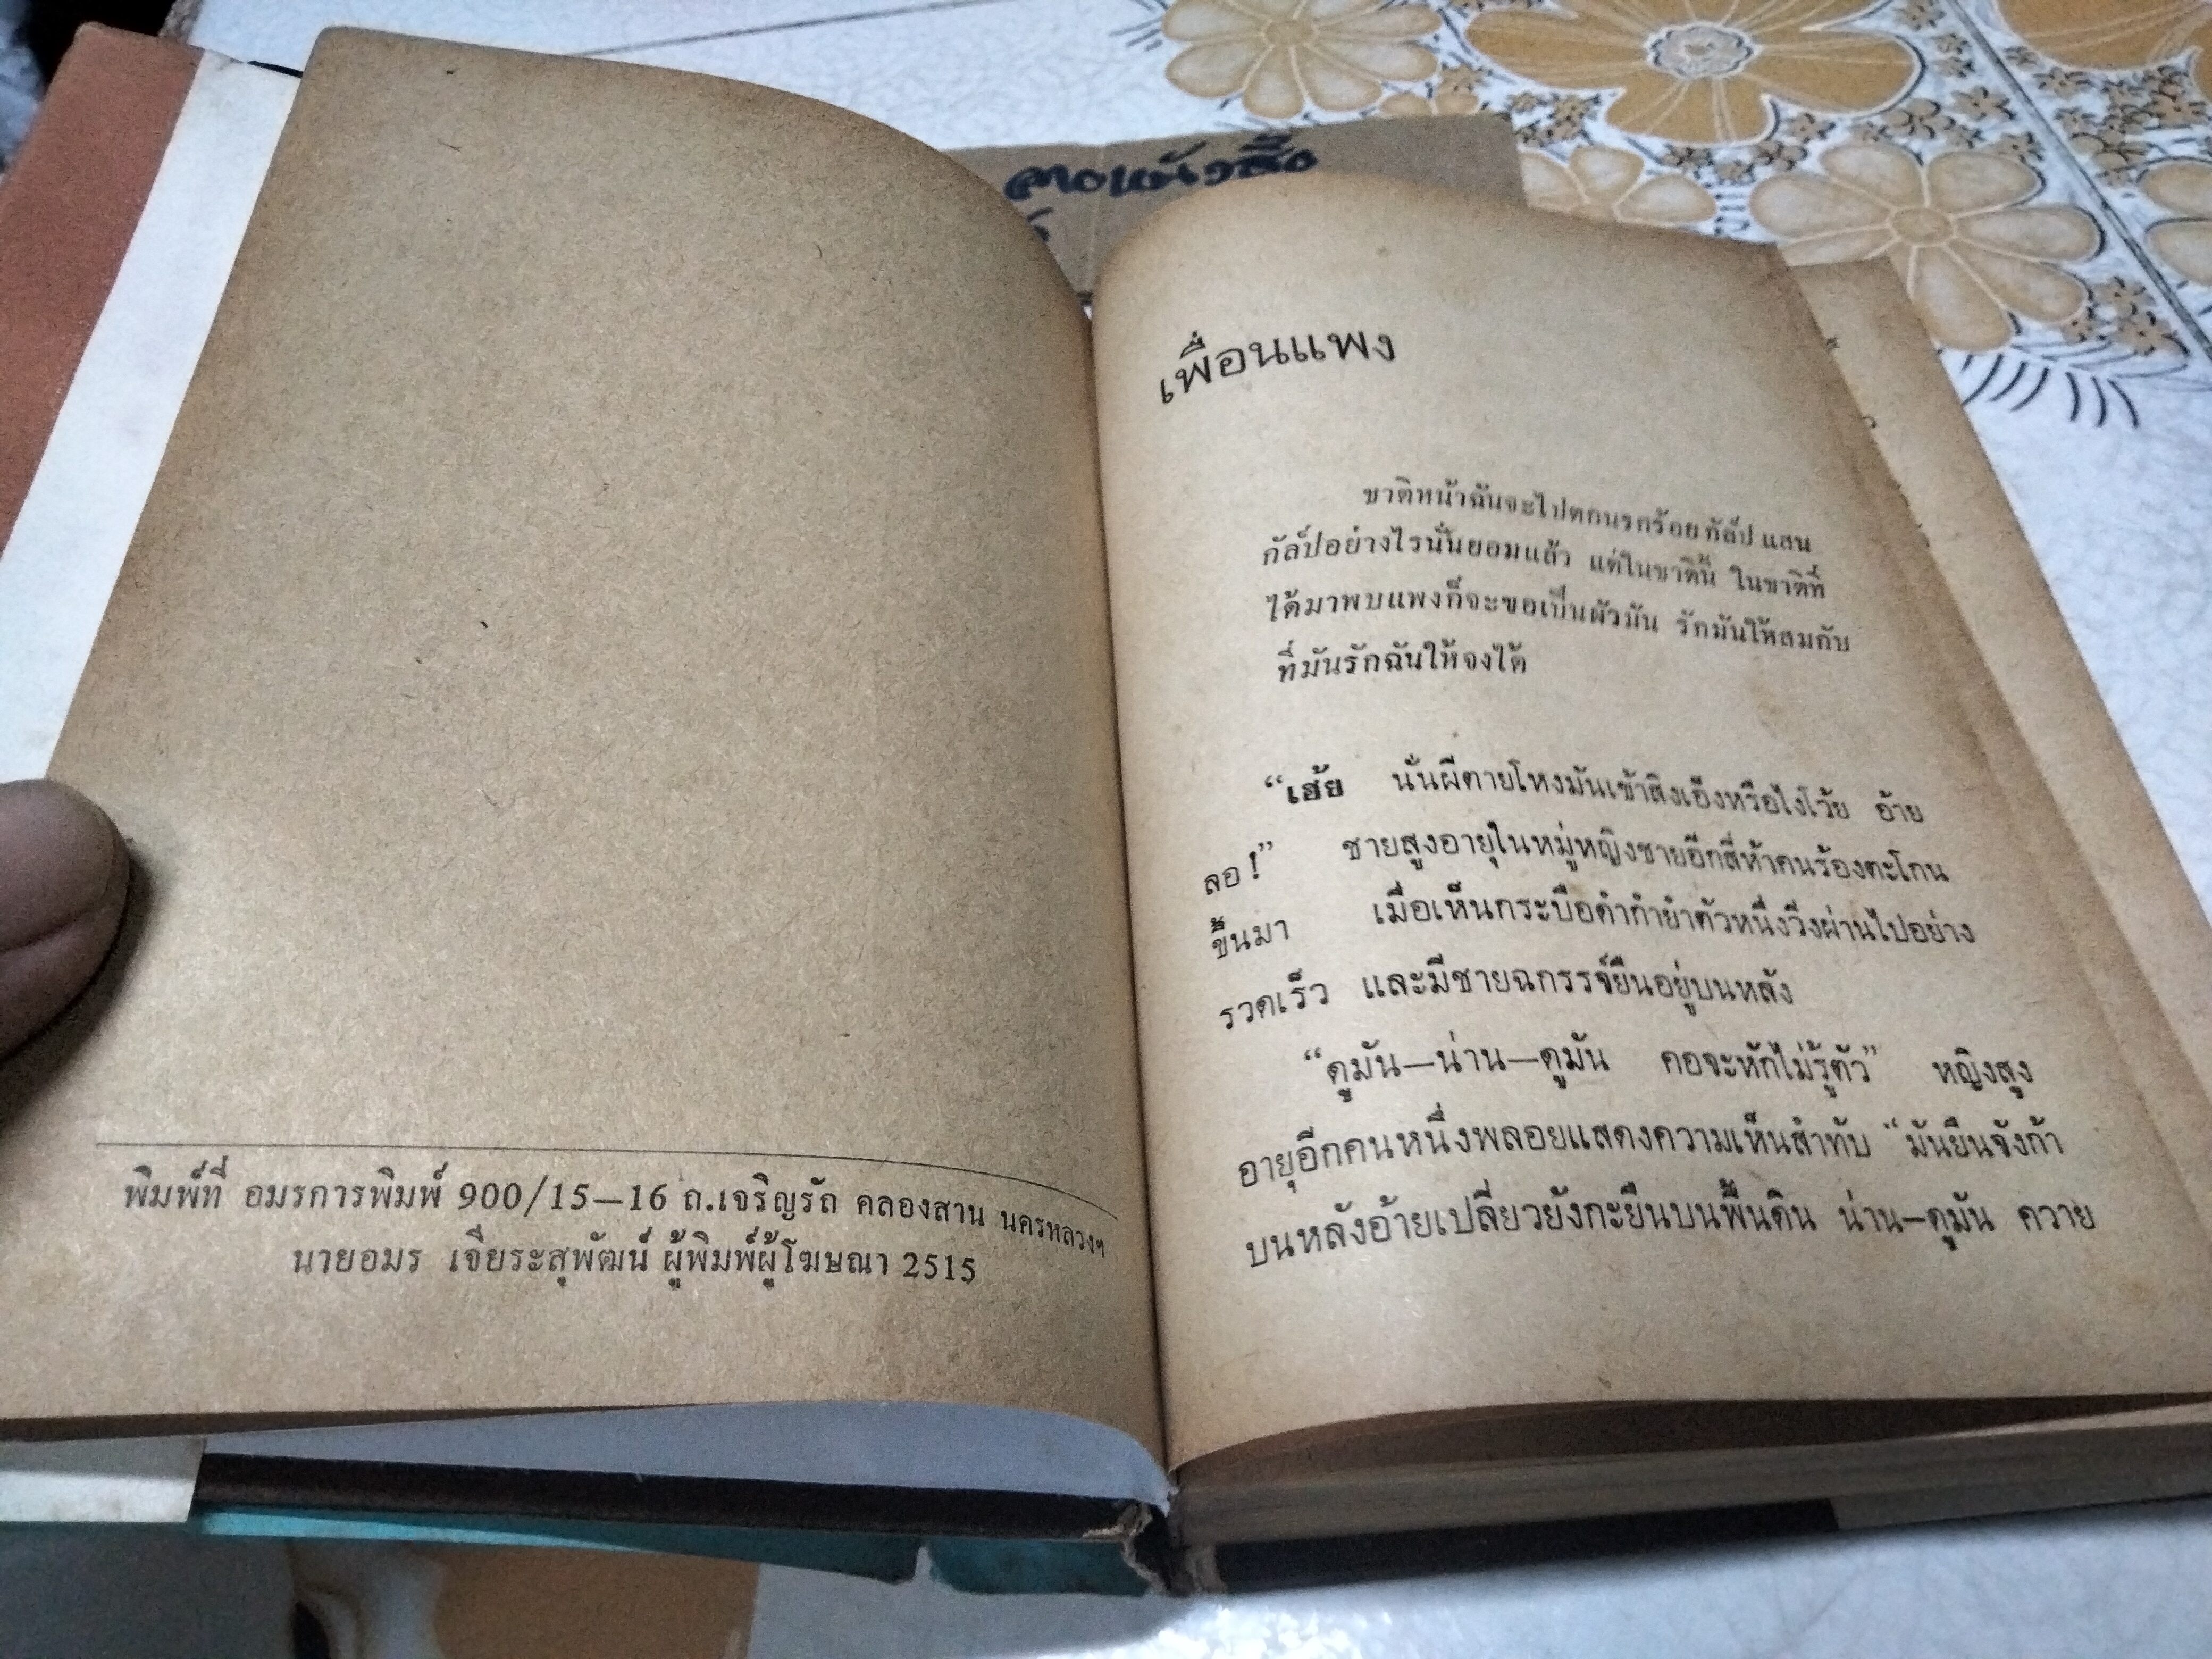 พิมพ์ที่ อมรการพิมพ์ 900/15—16 ถ.เจริญรัถ คลองสาน นครหลวงฯ
นายอมร เจียระสุพัฒน์ ผู้พิมพ์ผู้โฆษณา 2515
เพื่อนแพง
ชาติหน้าฉันจะไปตกนรกร้อยกัล์ป แสน
กัล์ปอย่างไรนั่นยอมแล้ว แต่ในชาตินี้ ในชาติที่
ได้มาพบแพงก็จะขอเป็นผัวมัน รักมันให้สมกับ
ที่มันรักฉันให้จงได้
“เฮ้ย นั่นผีตายโหงมันเข้าสิงเอ็งหรือไงโว้ย อ้าย
ลอ!” ชายสูงอายุในหมู่หญิงชายอีกสี่ห้าคนร้องตะโกน
ขึ้นมา เมื่อเห็นกระบือดำกำยำตัวหนึ่งวิ่งผ่านไปอย่าง
รวดเร็ว และมีชายฉกรรจ์ยืนอยู่บนหลัง
“ดูมัน—น่าน—ดูมัน คอจะหักไม่รู้ตัว” หญิงสูง
อายุอีกคนหนึ่งพลอยแสดงความเห็นสำทับ “มันยืนจังก้า
บนหลังอ้ายเปลี่ยวยังกะยืนบนพื้นดิน น่าน—ดูมัน ควาย